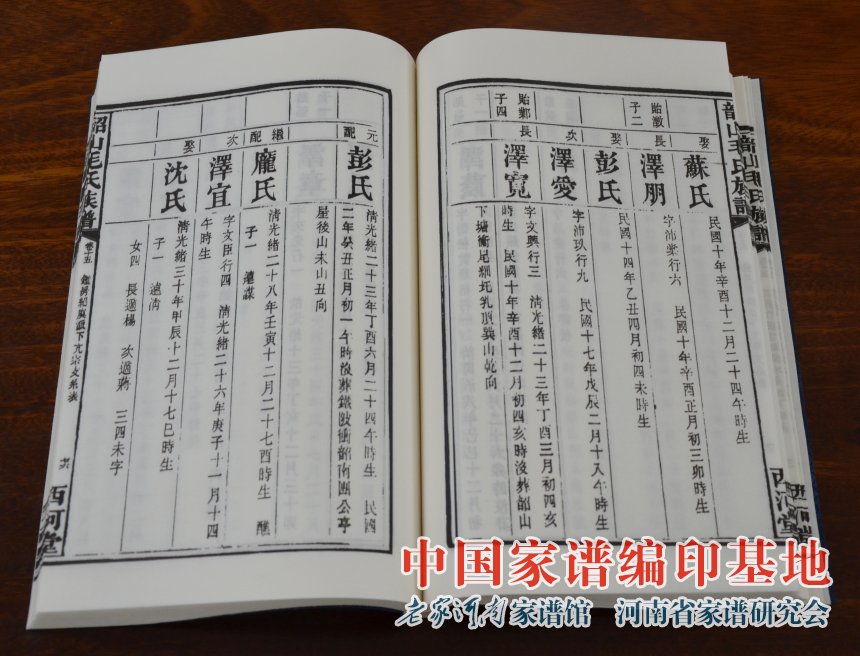 韶山毛氏族譜
西河堂
娶
蘇氏
民國十年辛酉十二月二十四午時生
貽激
子二
長
澤朋
字沛棠行六 民國十年辛酉正月初三卯時生
娶
彭氏
民國十四年乙丑四月初四未時生
次
澤愛
字沛玖行九 民國十七年戊辰二月十八午時生
貽鄴
子四
長
澤寬
字文興行三 清光緒二十三年丁酉三月初四亥
時生 民國十年辛酉十二月初四亥時沒葬韶山
下塘衝尾糰坨乳頂巽山乾向
元
配
彭氏
清光緒二十三年丁酉六月二十四午時生 民國
二年癸丑正月初一午時沒葬鐵陂衝韶南團公亭
屋後山未山丑向
繼
配
龐氏
清光緒二十八年壬寅十二月二十七酉時生 醮
子一 遠謀
次
澤宜
字文臣行四 清光緒二十六年庚子十一月十四
午時生
娶
沈氏
清光緒三十年甲辰十二月十七巳時生
子一 遠清
女四 長適楊 次適蔣 三四未字
韶山毛氏族譜
卷十五
西河堂
中国家谱编印基地
老家河南家谱馆 河南省家谱研究会